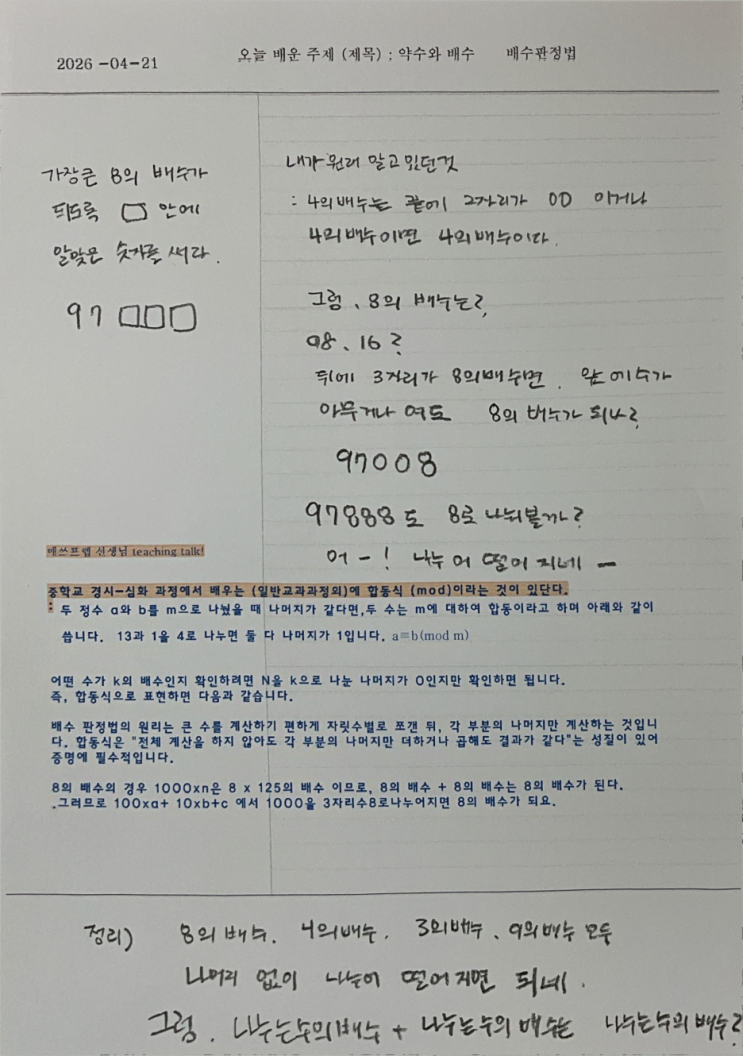 2026 -04-21
오늘 배운 주제 (제목) : 약수와 배수 배수판정법
가장큰 8의 배수가
되도록 □ 안에
알맞은 숫자를 써라.
97□□□
내가 원래 알고 있던것
: 4의배수는 끝에 2자리가 00 이거나
4의 배수이면 4의 배수이다.
그럼, 8의 배수는?
08. 16?
뒤에 3자리가 8의배수면. 앞에수가
아무거나 여도 8의 배수가 되나?
97008
97888도 8로 나눠볼까?
어-! 나누어 떨어지네 -
매쓰프렙 선생님 teaching talk!
중학교 경시-심화 과정에서 배우는 (일반교과과정의)에 합동식 (mod)이라는 것이 있단다.
: 두 정수 a와 b를 m으로 나눴을 때 나머지가 같다면,두 수는 m에 대하여 합동이라고 하며 아래와 같이
씁니다. 13과 1을 4로 나누면 둘 다 나머지가 1입니다. a≡b(mod m)
어떤 수가 k의 배수인지 확인하려면 N을 k으로 나눈 나머지가 0인지만 확인하면 됩니다.
즉, 합동식으로 표현하면 다음과 같습니다.
배수 판정법의 원리는 큰 수를 계산하기 편하게 자릿수별로 쪼갠 뒤, 각 부분의 나머지만 계산하는 것입니
다. 합동식은 "전체 계산을 하지 않아도 각 부분의 나머지만 더하거나 곱해도 결과가 같다"는 성질이 있어
증명에 필수적입니다.
8의 배수의 경우 1000xn은 8 x 125의 배수 이므로, 8의 배수 + 8의 배수는 8의 배수가 된다.
.그러므로 100xa+ 10xb+c 에서 1000을 3자리수8로나누어지면 8의 배수가 되요.
정리) 8의 배수. 4의배수. 3의배수. 9의배수 모두
나머지 없이 나누어 떨어지면 되네.
그럼. 나누는수의배수 + 나누는수의 배수는 나누는수의 배수?